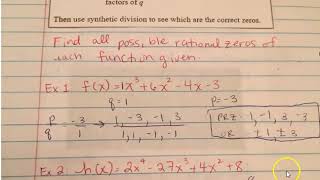 factors of q
Then use synthetic division to see which are the correct zeros.
Find all poss, ble rational zeros of
each function given.
Ex 1 f(x) = 1x³ + 6x² - 4x - 3
q = 1 p = -3
p/q -3/1 → 1, -3, -1, 3 / 1, 1, -1, -1 →
PRZ = 1, -1, 3, -3
OR ± 1 ± 3
Ex 2: h(x) = 2x⁴ - 27x³ + 4x² + 8